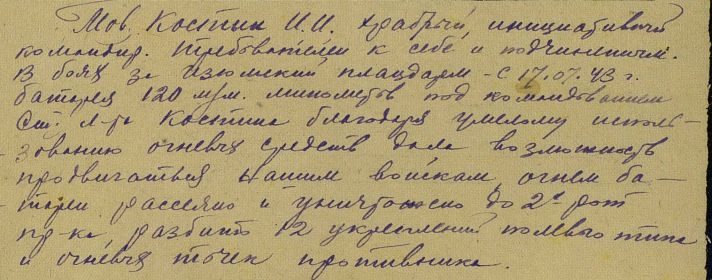 Тов. Костин И.И. храбрый, инициативный
командир. Требователен к себе и подчиненным.
В боях за Изюмский плацдарм - с 17.07.43 г.
батарея 120 м/м. минометов под командованием
ст. л-та Костина благодаря умелому исполь-
зованию огневых средств дала возможность
продвигаться нашим войскам, огнем ба-
тареи рассеяно и уничтожено до 2х рот
пр-ка, разбито 12 укреплений полевого типа
и огневых точек противника.